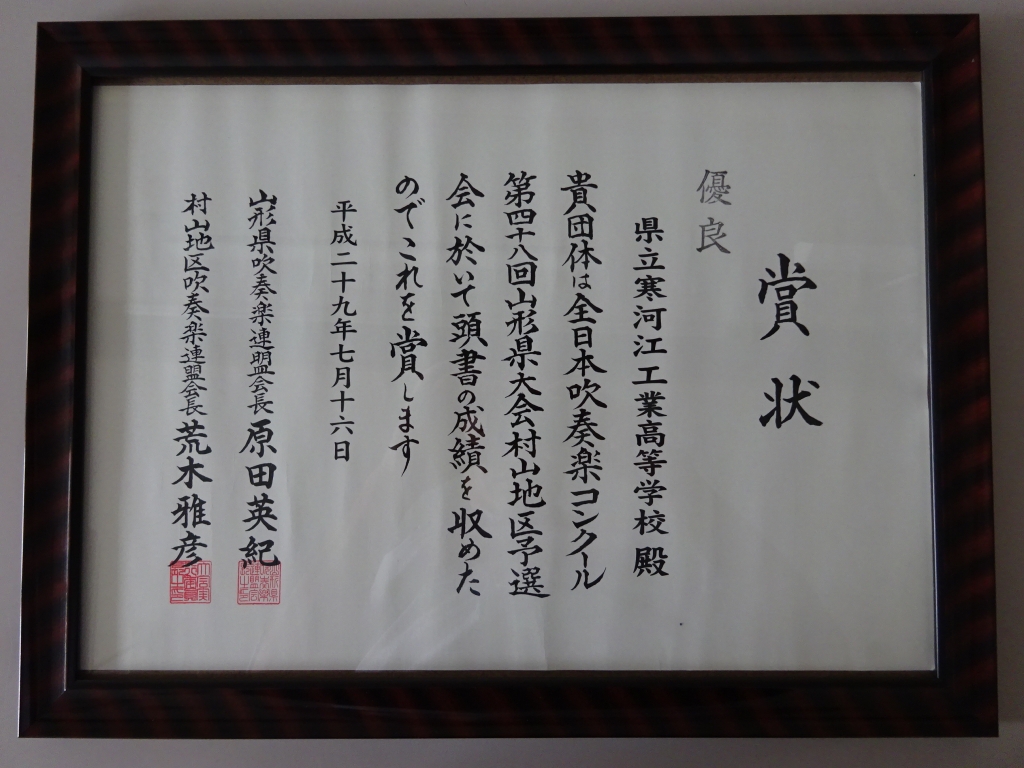 賞状
優良
県立寒河江工業高等学校 殿
貴団体は全日本吹奏楽コンクール
第四十八回山形県大会村山地区予選
会に於いて頭書の成績を収めた
のでこれを賞します
平成二十九年七月十六日
山形県吹奏楽連盟会長 原田英紀
村山地区吹奏楽連盟会長 荒木雅彦